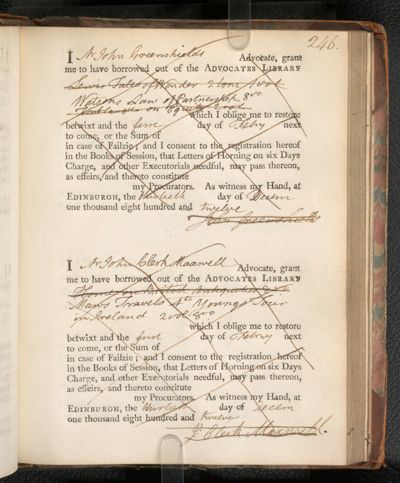 246.
I Mr John Greenshields Advocate, grant
me to have borrowed out of the ADVOCATES LIBRARY
Lewis Tales of Wonder 2 tom
Watsons Law of Partnership 8vo
which I oblige me to restore
betwixt and the first day of Febry next
to come, or the Sum of
in case of Failzie; and I consent to the registration hereof
in the Books of Session, that Letters of Horning on six Days
Charge, and other Executorials needful, may pass thereon,
as effeirs, and thereto constitute
my Procurators. As witness my Hand, at
EDINBURGH, the thirtieth day of Decem
one thousand eight hundred and twelve
John Greenshields
I Mr John Clerk Maxwell Advocate, grant
me to have borrowed out of the ADVOCATES LIBRARY
Home on British Antiquities
Travels 4to Youngs Tour
in Ireland 2 vol 8vo
which I oblige me to restore
betwixt and the first day of Febry next
to come, or the Sum of
in case of Failzie; and I consent to the registration hereof
in the Books of Session, that Letters of Horning on six Days
Charge, and other Executorials needful, may pass thereon,
as effeirs, and thereto constitute
my Procurators. As witness my Hand, at
EDINBURGH, the thirtieth day of Decem
one thousand eight hundred and twelve
J. Clerk Maxwell.